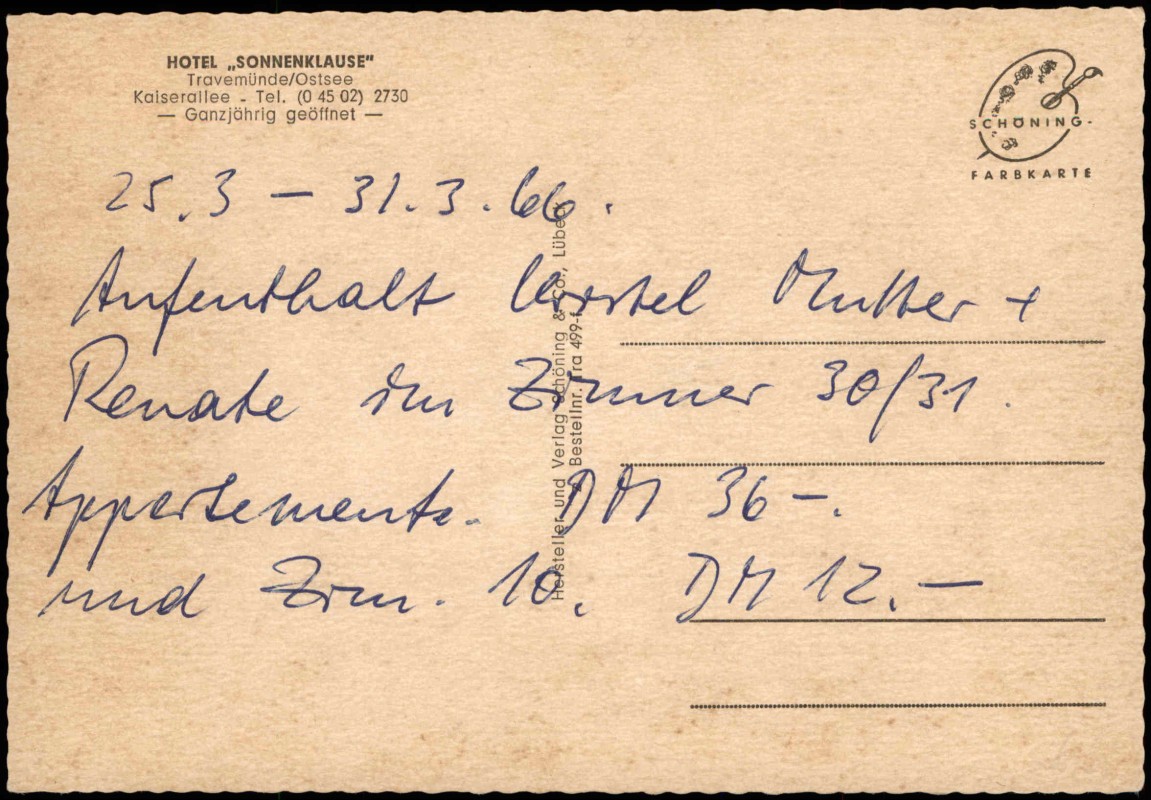 HOTEL „SONNENKLAUSE"
Travemünde/Ostsee
Kaiserallee - Tel. (0 45 02) 2730
— Ganzjährig geöffnet —
SCHÖNING-
FARBKARTE
25.3 — 31.3.66.
Aufenthalt Mutter +
Renate im Zimmer 30/31.
Appartements. DM 36-.
und Zim. 10. DM 12.—
Hersteller und Verlag Schöning & Co., Lübeck
Bestellnr. Tra 499-f